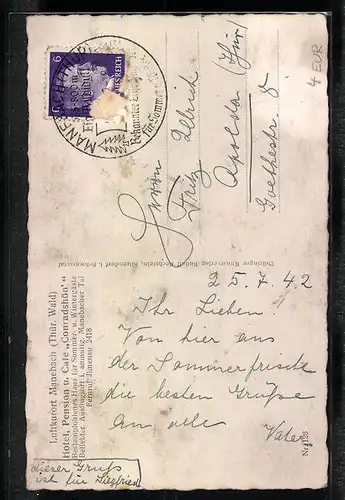 Luftkurort Manebach (Thür. Wald)
Hotel, Pension u. Cafe „Conradshön"
Bestempfohlenes Haus für Sommer- u. Wintergäste
Beliebter Ausflugsort i. anmutig. Manebacher Tal
Fernruf Ilmenau 2418
dieser Gruß
ist für Siegfried
25.7.42
Ihr Lieben!
Von hier aus
der Sommerfrische
die besten Grüße
an alle
Vater
Thüringer Kunstverlag Rudolf Bechstein, Sitzendorf i. Schwarzatal
MANEBACH
Bekannter
für Sommer
6
Herrn
Fritz Ullrich
Apolda (Thür)
Goethestr. 8
4 EUR